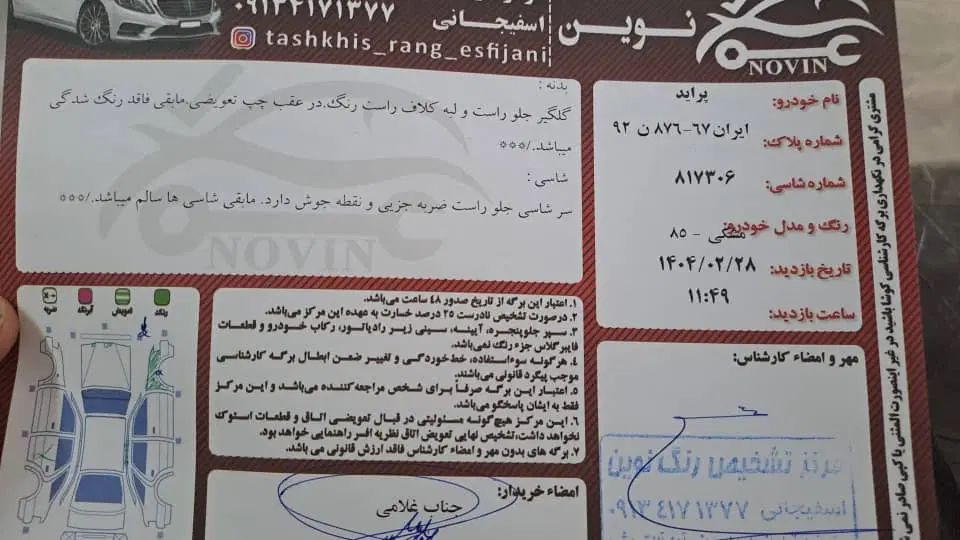 ۰۹۱۳۴۱۷۱۳۷۷
اسفیجانی
نوین
tashkhis_rang_esfijani
NOVIN
نام خودرو: پراید
شماره پلاک: ایران ۶۷-۸۷۶ ن ۹۲
شماره شاسی: ۸۱۷۳۰۶
رنگ و مدل خودرو: مشکی - ۸۵
تاریخ بازدید: ۱۴۰۴/۰۲/۲۸
ساعت بازدید: ۱۱:۴۹
بدنه :
گلگیر جلو راست و لبه کلاف راست رنگ.در عقب چپ تعویضی.مابقی فاقد رنگ شدگی
میباشد./***
شاسی :
سر شاسی جلو راست ضربه جزیی و نقطه جوش دارد. مابقی شاسی ها سالم میباشد./***
NOVIN
رنگ
تعویض
ضربه
۱. اعتبار این برگه از تاریخ صدور ۴۸ ساعت می‌باشد.
۲. درصورت تشخیص نادرست ۲۵ درصد خسارت به عهده این مرکز می‌باشد.
۳. سپر جلوپنجره، آیینه، سینی زیر رادیاتور، رکاب خودرو و قطعات
فایبرگلاس جزء رنگ نمی‌باشد.
۴. هرگونه سوءاستفاده، خط‌خوردگی و تغییر ضمن ابطال برگه کارشناسی
موجب پیگرد قانونی می‌باشد.
۵. اعتبار این برگه صرفاً برای شخص مراجعه‌کننده می‌باشد و این مرکز
فقط به ایشان پاسخگو می‌باشد.
۶. این مرکز هیچ‌گونه مسئولیتی در قبال تعویضی اتاق و قطعات استوک
نخواهد داشت،تشخیص نهایی تعویض اتاق نظریه افسر راهنمایی خواهد بود.
۷. برگه های بدون مهر و امضاء کارشناس فاقد ارزش قانونی می باشد.
مهر و امضاء کارشناس:
مرکز تشخیص رنگ نوین
اسفیجانی ۰۹۱۳۴۱۷۱۳۷۷
امضاء خریدار:
جناب غلامی
مشتری گرامی در نگهداری برگه کارشناسی کوشا باشید در غیر اینصورت المثنی یا کپی صادر نمی